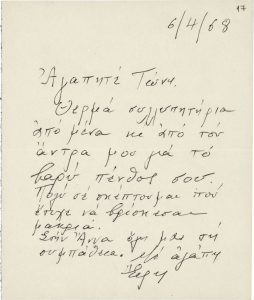 17
6/4/68
Ἀγαπητέ Τώνη.
Θερμά συλλυπητήρια
ἀπό μένα κε ἀπό τόν
ἄντρα μου γιά τό
βαρύ πένθος σου.
Πολύ σέ σκέπτουμαι πού
ἔτυχε νά βρίσκεσαι
μακριά.
Στήν Ἄννα ὅλη μας τή
συμπάθεια. μέ ἀγάπη